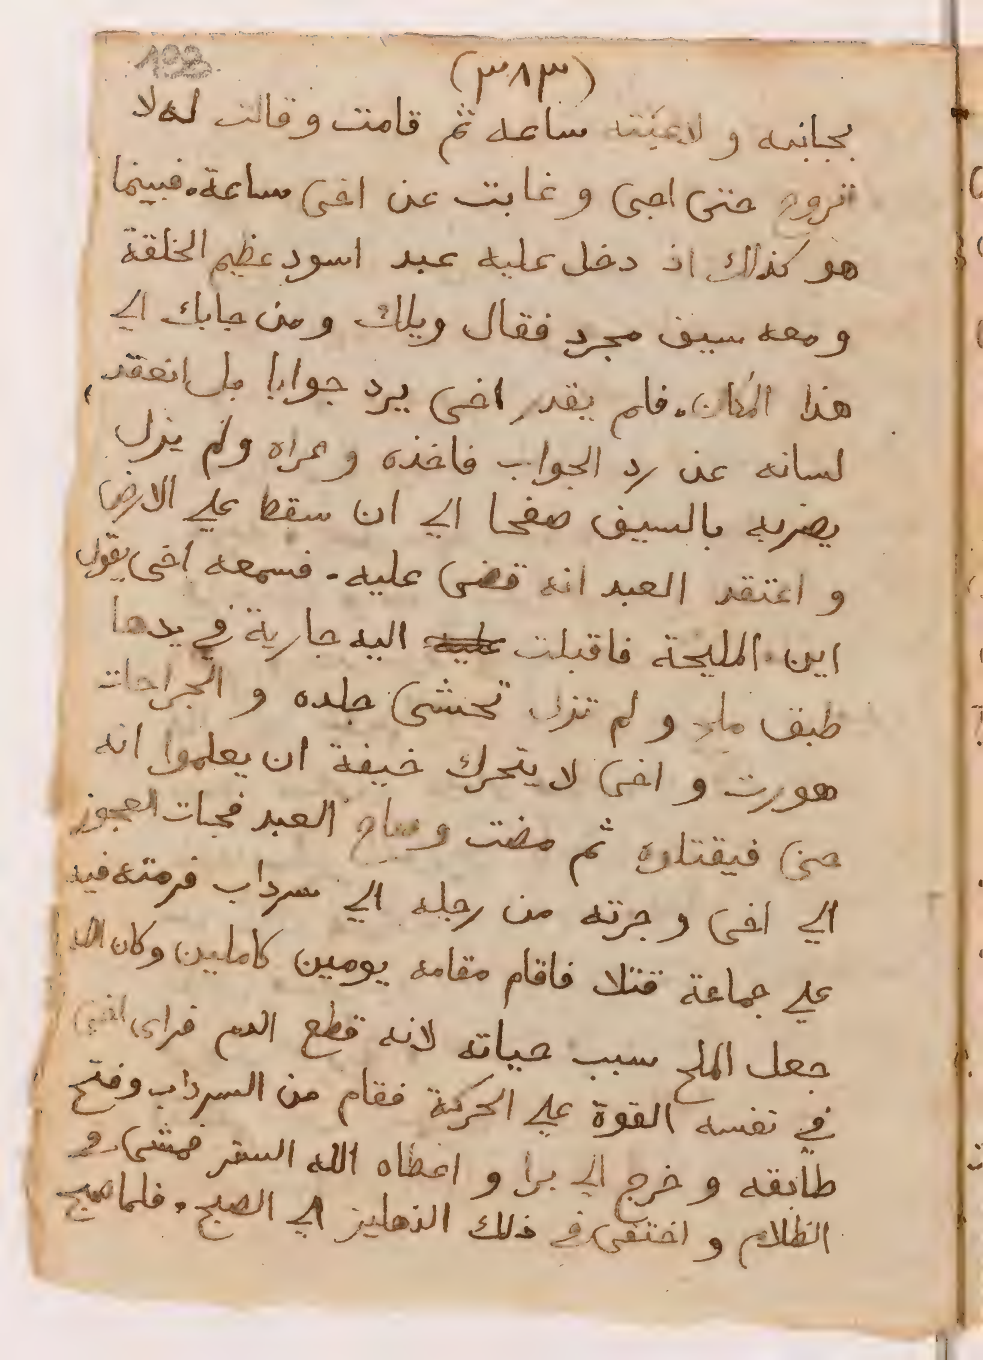 192
(٣٨٣)
بجانبه و لاعبته ساعه ثم قامت وقالت له لا
تروح حتى اجى و غابت عن اخى ساعة. فبينما
هو كذلك اذ دخل عليه عبد اسود عظيم الخلقة
و معه سيف مجرد فقال ويلك ومن جابك الي
هذا المكان. فلم يقدر اخى يرد جوابا بل انعقد
لسانه عن رد الجواب فاخذه و عراه ولم يزل
يضربه بالسيف صفحا الي ان سقط علي الارض
و اعتقد العبد انه قضى عليه. فسمعه اخى يقول
اين المليحة فاقبلت عليه اليه جارية في يدها
طبق ملح و لم تزل تحشى جلده و الجراحات
هورت و اخى لا يتحرك خيفة ان يعلموا انه
حى فيقتلوه ثم مضت وصاح العبد فجات العجوز
الي اخى و جرته من رجله الي سرداب فرمته فيه
علي جماعة قتلا فاقام مقامه يومين كاملين وكان الله
جعل الملح سبب حياته لانه قطع الدم فراى اخى
في نفسه القوة علي الحركة فقام من السرداب وفتح
طابقه و خرج الي برا و اعطاه الله الستر فمشى في
الظلام و اختفى في ذلك الدهليز الي الصبح. فلما صبح